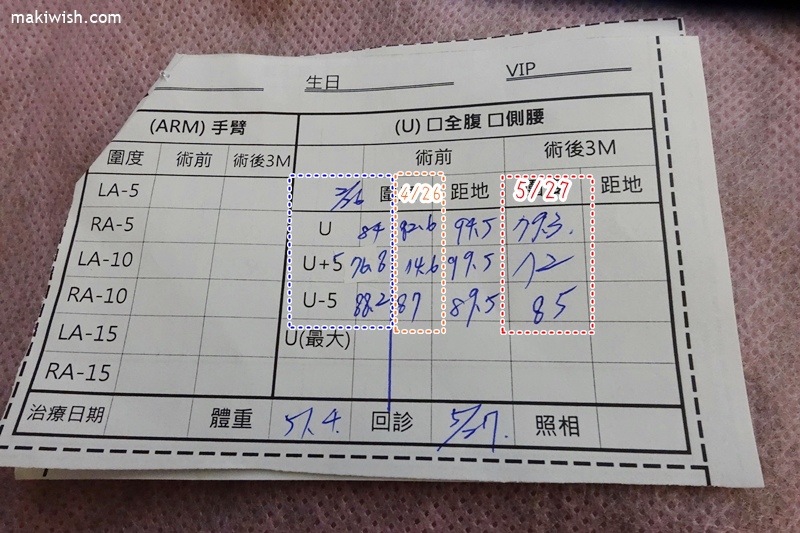 makiwish.com
生日 VIP
(ARM) 手臂 (U) 口全腹 口側腰
圍度 術前 術後3M 術前 術後3M
圍 4/26 距地 5/27 距地
LA-5
RA-5 U 84 82.6 94.5 79.3.
LA-10 U+5 76.8 74.6 99.5 72
RA-10 U-5 88.2 87 89.5 85
LA-15 U(最大)
RA-15
治療日期 體重 51.4. 回診 5/27. 照相